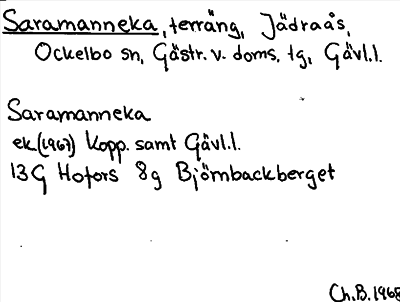 Saramanneka, terräng, Jädraås,
Ockelbo sn, Gästr. v. doms. tg, Gävl.l.
Saramanneka
ek(1967) Kopp. samt Gävl.l.
13G Hofors 8g Björnbackberget
Ch.B. 1968